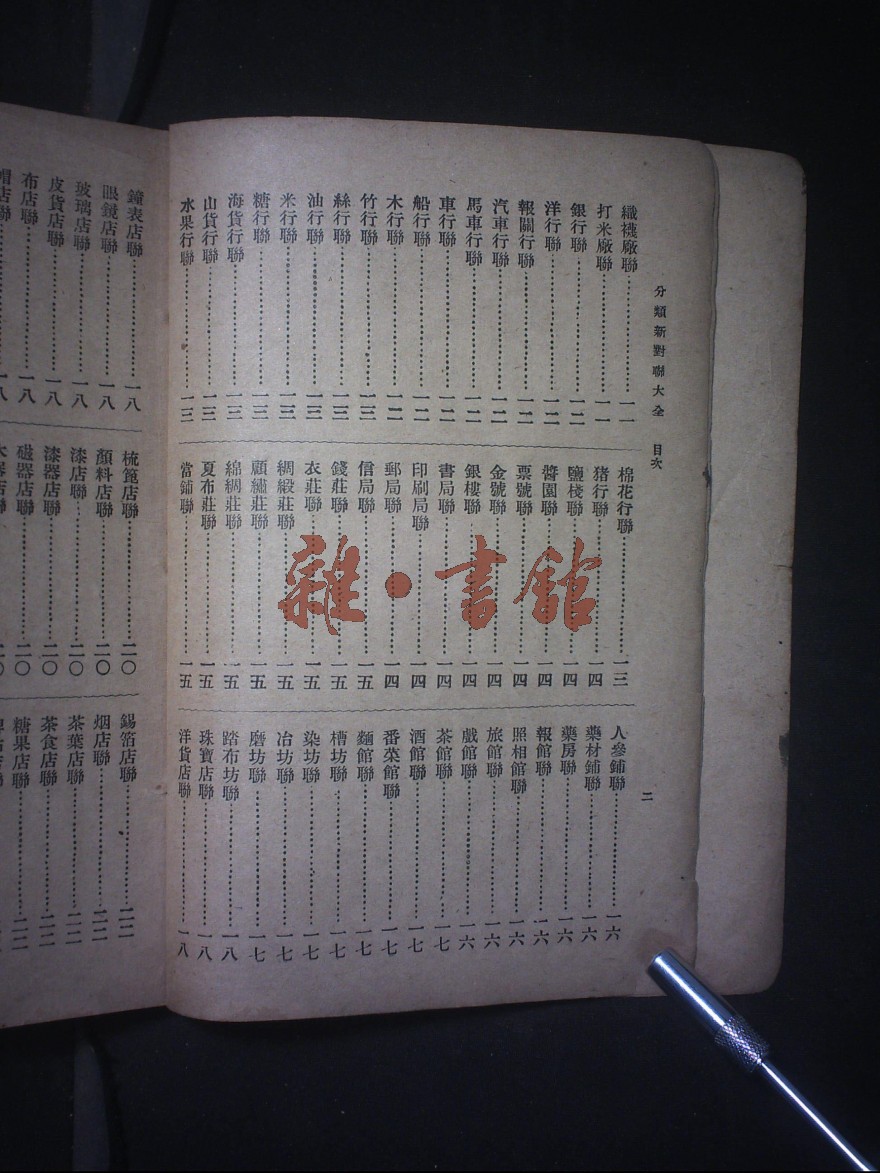 分類新對聯大全 目次
二
織襪廠聯……………一一
打米廠聯……………一一
銀行聯……………一二
洋行聯……………一二
報關行聯……………一二
汽車行聯……………一二
馬車行聯……………一二
車行聯……………一二
船行聯……………一二
木行聯……………一二
竹行聯……………一三
絲行聯……………一三
油行聯……………一三
米行聯……………一三
糖行聯……………一三
海貨行聯……………一三
山貨行聯……………一三
水果行聯……………一三
棉花行聯……………一三
猪行聯……………一四
鹽棧聯……………一四
醬園聯……………一四
票號聯……………一四
金號聯……………一四
銀樓聯……………一四
書局聯……………一四
印刷局聯……………一四
郵局聯……………一四
信局聯……………一五
錢莊聯……………一五
衣莊聯……………一五
綢緞莊聯……………一五
顧繡莊聯……………一五
綿綢莊聯……………一五
夏布莊聯……………一五
當鋪聯……………一五
人參鋪聯……………一六
藥材鋪聯……………一六
藥房聯……………一六
報館聯……………一六
照相館聯……………一六
旅館聯……………一六
戲館聯……………一六
茶館聯……………一七
酒館聯……………一七
番菜館聯……………一七
麵館聯……………一七
槽坊聯……………一七
染坊聯……………一七
冶坊聯……………一七
磨坊聯……………一七
踏布坊聯……………一八
珠寶店聯……………一八
洋貨店聯……………一八
鐘表店聯……………一八
眼鏡店聯……………一八
玻璃店聯……………一八
皮貨店聯……………一八
布店聯……………一八
帽店聯……………一八
梳篦店聯……………二〇
顏料店聯……………二〇
漆店聯……………二〇
漆器店聯……………二〇
磁器店聯……………二〇
器店聯
錫箔店聯……………二二
烟店聯……………二二
茶葉店聯……………二二
茶食店聯……………二二
糖果店聯……………二二
店聯
雜·書館